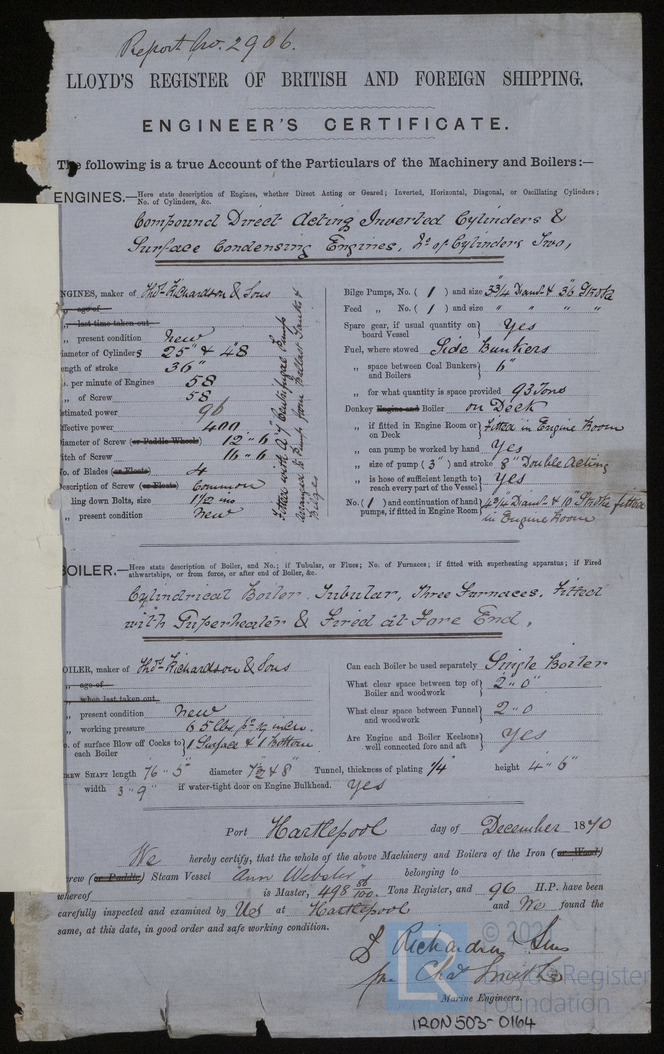 Report No. 2906.
LLOYD'S REGISTER OF BRITISH AND FOREIGN SHIPPING.
ENGINEER'S CERTIFICATE.
The following is a true Account of the Particulars of the Machinery and Boilers:—
ENGINES.—Here state description of Engines, whether Direct Acting or Geared; Inverted, Horizontal, Diagonal, or Oscillating Cylinders;
No. of Cylinders, &c.
Compound Direct Acting Inverted Cylinders &
Surface Condensing Engines, No of Cylinders Two,
NGINES, maker of Thos. Richardson & Sons
„ age of
„ last time taken out
„ present condition New
Diameter of Cylinders 25" & 48
ength of stroke 36"
o. per minute of Engines 58
„ of Screw 58
Estimated power 96
ffective power 400
Diameter of Screw (or Paddle Wheel) 12 " 6
itch of Screw 16 " 6
No. of Blades (or Floats) 4
Description of Screw (or Floats) Common
ling down Bolts, size 1 1/2 ins
„ present condition New
Fitted with a 7" Centrifugal Pump
arranged to Pump from Ballast Tanks &
Bilges
Bilge Pumps, No. ( 1 ) and size 3 3/4 Diamr & 36" Stroke
Feed „ No. ( 1 ) and size " " " "
Spare gear, if usual quantity on board Vessel } Yes
Fuel, where stowed Side Bunkers
„ space between Coal Bunkers and Boilers } 6"
„ for what quantity is space provided 93 Tons
Donkey Engine and Boiler on Deck
„ if fitted in Engine Room or on Deck } Fitted in Engine Room
„ can pump be worked by hand Yes
„ size of pump ( 3" ) and stroke 8" Double Acting
„ is hose of sufficient length to reach every part of the Vessel } Yes
No. ( 1 ) and continuation of hand pumps, if fitted in Engine Room } 4 3/4 Diamr & 10" Stroke fitted
in Engine Room
BOILER.—Here state description of Boiler, and No.; if Tubular, or Flues; No. of Furnaces; if fitted with superheating apparatus; if Fired
athwartships, or from force, or after end of Boiler, &c.
Cylindrical Boiler. Tubular, Three Furnaces. Fitted
with Superheater & Fired at Fore End.
OILER, maker of Thos. Richardson & Sons
„ age of
„ when last taken out
„ present condition New
„ working pressure 65 lbs. pr sq inch.
o. of surface Blow off Cocks to each Boiler } 1 Surface & 1 Bottom
Can each Boiler be used separately Single Boiler
What clear space between top of Boiler and woodwork } 2" 0"
What clear space between Funnel and woodwork } 2" 0
Are Engine and Boiler Keelsons well connected fore and aft } Yes
REW SHAFT length 76 " 5" diameter 7 1/2 & 8" Tunnel, thickness of plating 1/4" height 4" 6"
width 3 " 9" if water-tight door on Engine Bulkhead. Yes
Port Hartlepool day of December 1870
We hereby certify, that the whole of the above Machinery and Boilers of the Iron (or Wood)
rew (or Paddle) Steam Vessel "Ann Webster" belonging to
whereof is Master, 498 Tons Register, and 96 H.P. have been
carefully inspected and examined by Us at Hartlepool and We found the
same, at this date, in good order and safe working condition.
T Richardson & Sons
per Chas Smith
Marine Engineers.
© 2021
Lloyd's Register
Foundation
IRON503-0164